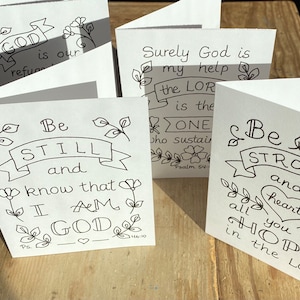 GOD
is our
refuge
Surely God is
my help
the LORD
is the
ONE
who sustains
Psalm 54:
Be
STILL
and
know that
I AM
GOD
Ps. 46:10
Be
STRO
and
heart
all you
HOP
in the L